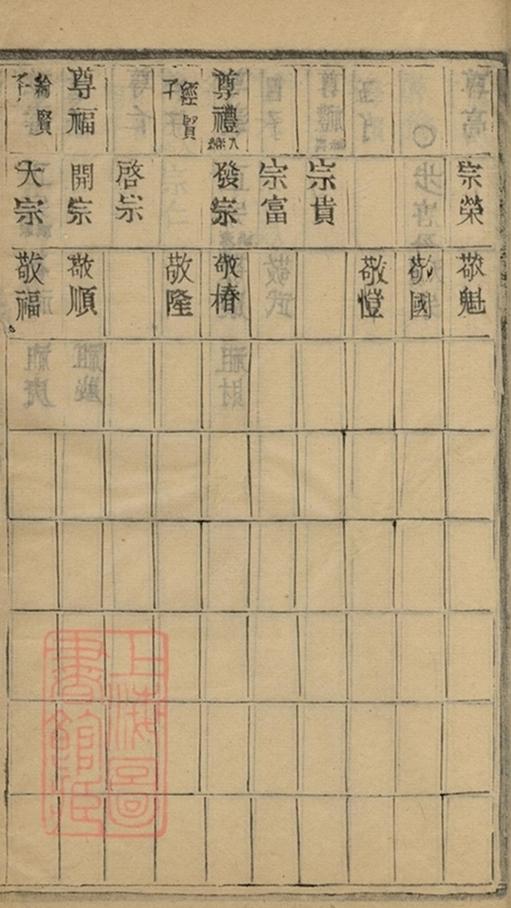 宗榮 敬魁
敬國
敬憕
宗貴
宗富
尊禮 發宗 敬椿
經賢子 敬隆
啓宗
尊福 開宗 敬順
綸賢子 大宗 敬福
上海圖書館藏